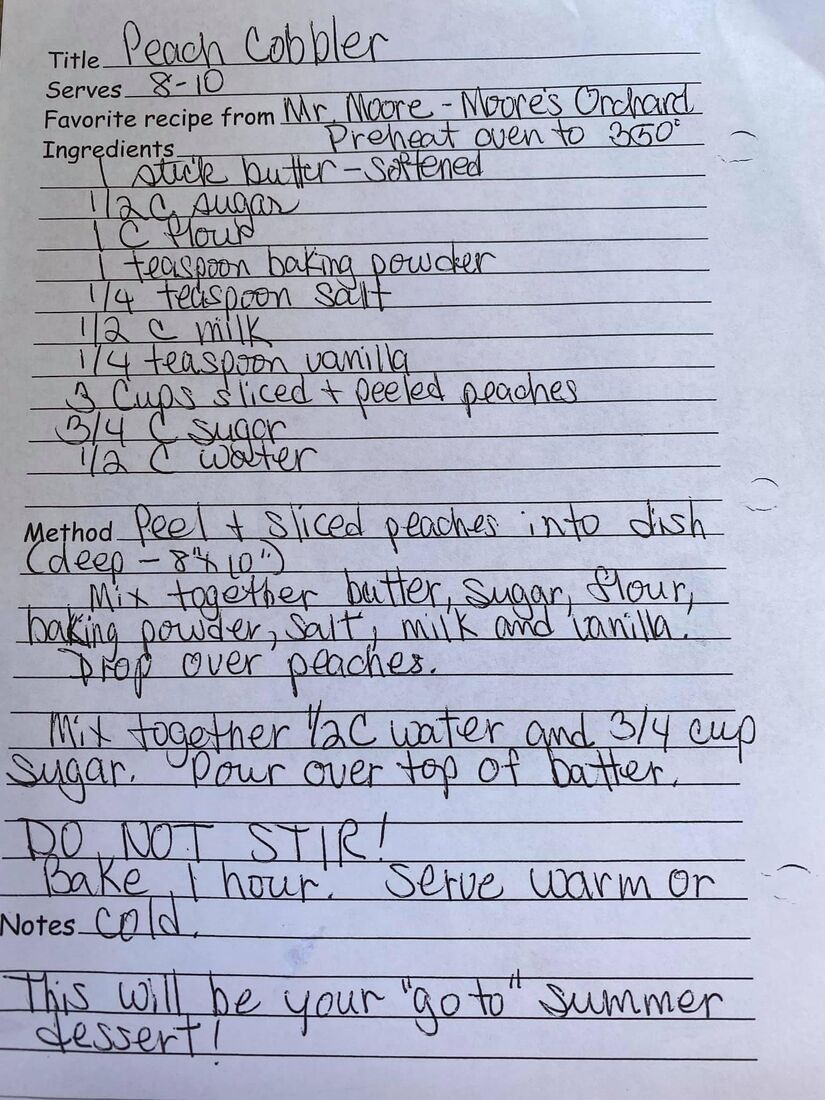 Title Peach Cobbler
Serves 8-10
Favorite recipe from Mr. Moore - Moore's Orchard
Ingredients Preheat oven to 350°
1 stick butter - softened
1/2 C sugar
1 C flour
1 teaspoon baking powder
1/4 teaspoon salt
1/2 C milk
1/4 teaspoon vanilla
3 Cups sliced + peeled peaches
3/4 C sugar
1/2 C water
Method Peel + sliced peaches into dish
(deep - 8"x 10")
Mix together butter, sugar, flour,
baking powder, salt, milk and vanilla.
Drop over peaches.
Mix together 1/2 C water and 3/4 cup
sugar. Pour over top of batter.
DO NOT STIR!
Bake 1 hour. Serve warm or
Notes cold.
This will be your "go to" summer
dessert!